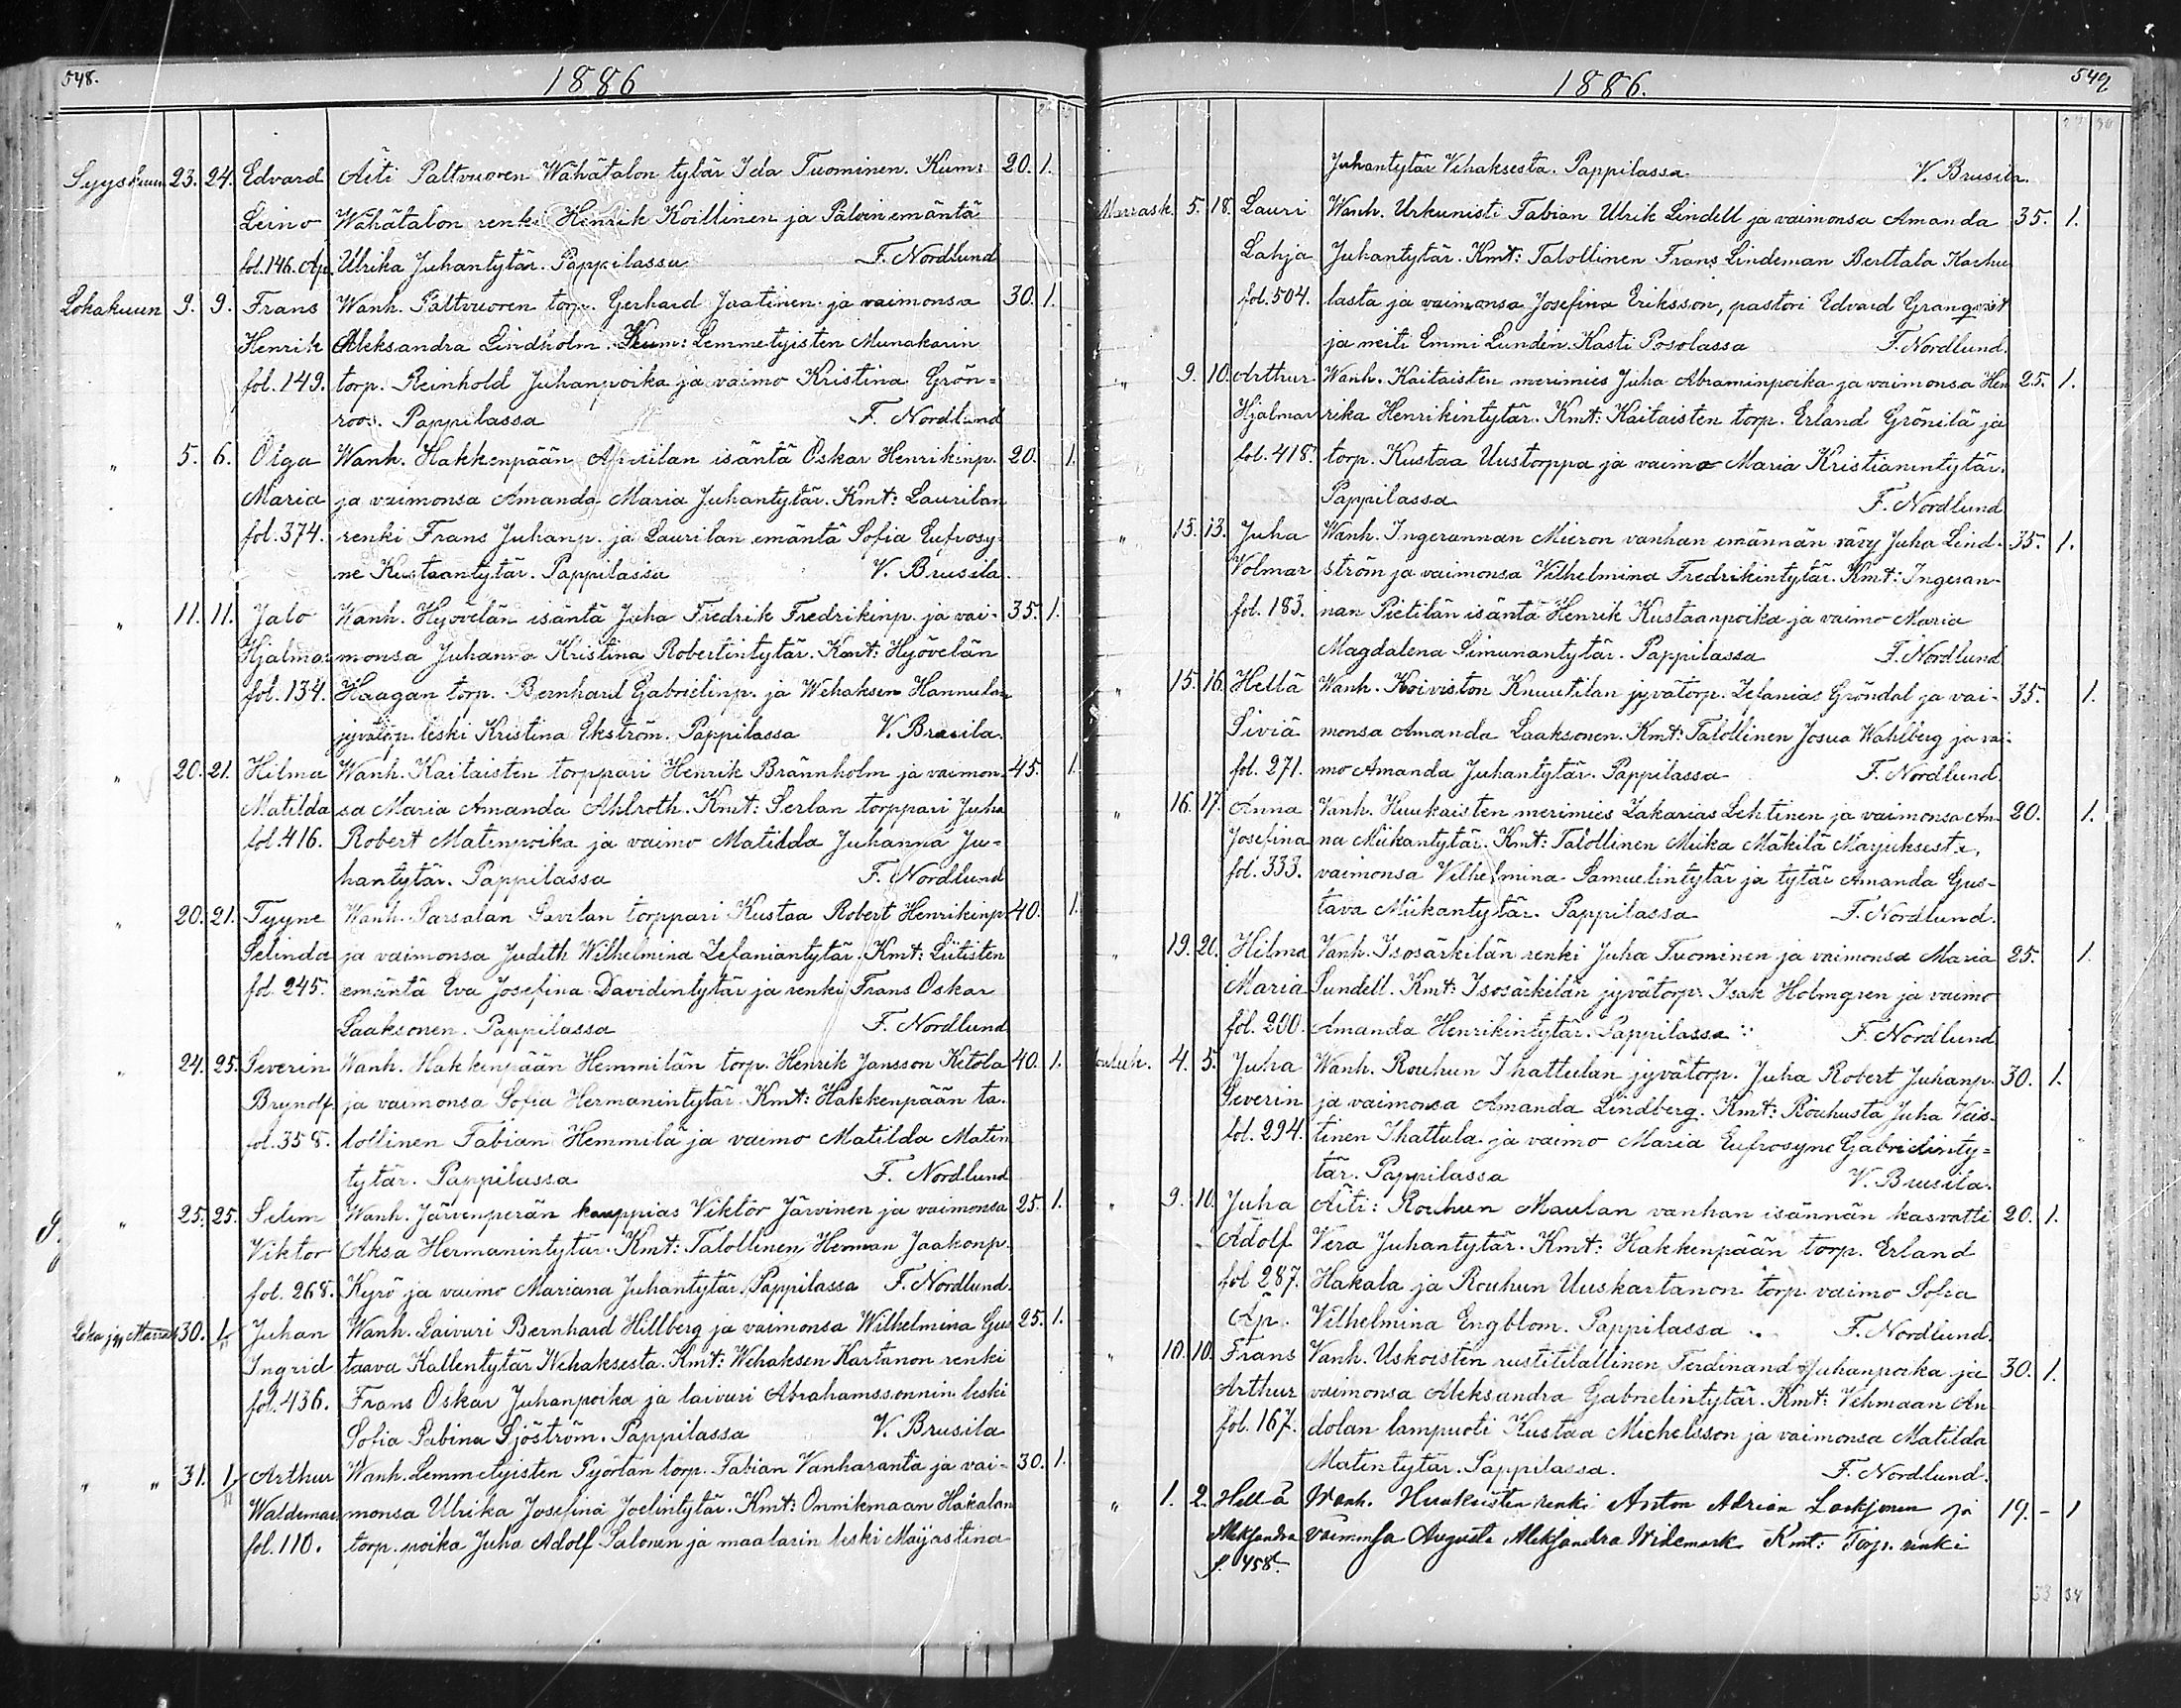 548.
1886
Syyskuun 23. 24. Edvard Äiti Paltvuoren Wähätalon tytär Ida Tuominen. Kum: 20. 1.
Leino Wähätalon renki Henrik Koillinen ja Pälvin emäntä
fol. 146. Äp. Ulrika Juhantytär. Pappilassa F. Nordlund
Lokakuun 9. 9. Frans Wanh. Paltvuoren torp. Gerhard Jaatinen ja vaimonsa 30. 1.
Henrik Aleksandra Lindholm. Kum: Lemmetyisten Munakarin
fol. 149. torp. Reinhold Juhanpoika ja vaimo Kristina Grön=
roos. Pappilassa F. Nordlund
" 5. 6. Olga Wanh. Hakkenpään isäntä Oskar Henrikinp. 20. 1.
Maria ja vaimonsa Amanda Maria Juhantytär. Kmt: Laurilan
fol. 374. renki Frans Juhanp. ja Laurilan emäntä Sofia Eufrosy
ne Kustaantytär. Pappilassa V. Brusila.
" 11. 11. Jalo Wanh. Hyövelän isäntä Juha Fredrik Fredrikinp. ja vai- 35. 1.
Hjalmar monsa Juhanna Kristina Robertintytär. Kmt: Hyövelän
fol. 134. Haagan torp. Bernhard Gabrielinp. ja Wehaksen Hannulan
jyvätorp. leski Kristina Ekström. Pappilassa V. Brusila.
" 20. 21. Hilma Wanh. Kaitaisten torppari Henrik Brännholm ja vaimon- 45. 1.
Matilda sa Maria Amanda Ahlroth. Kmt: Serlan torppari Juha
fol. 416. Robert Matinpoika ja vaimo Matilda Juhanna Ju=
hantytär. Pappilassa F. Nordlund
" 20. 21. Tyyne Wanh. Sarsalan Savilan torppari Kustaa Robert Henrikinp. 40. 1.
Selinda ja vaimonsa Judith Wilhelmina Zefaniantytär. Kmt: Liitisten
fol. 245. emäntä Eva Josefina Davidintytär ja renki Frans Oskar
Laaksonen. Pappilassa F. Nordlund
" 24. 25. Severin Wanh. Hakkenpään Hemmilän torp. Henrik Jansson Ketola 40. 1.
Brynolf ja vaimonsa Sofia Hermanintytär. Kmt: Hakkenpään ta-
fol. 358. lollinen Fabian Hemmilä ja vaimo Matilda Matin
tytär. Pappilassa F. Nordlund
" 25. 25. Selim Wanh. Järvenperän kauppias Viktor Järvinen ja vaimonsa 25. 1.
Viktor Aksa Hermanintytär. Kmt: Talollinen Herman Jaakonp.
fol. 268. Kyrö ja vaimo Mariana Juhantytär. Pappilassa F. Nordlund.
Loka ja Marrask 30. 1. Juhan Wanh. Laivuri Bernhard Hillberg ja vaimonsa Wilhelmina Gus 25. 1.
Ingrid taava Kallentytär Wehaksesta. Kmt: Wehaksen Kartanon renki
fol. 436. Frans Oskar Juhanpoika ja laivuri Abrahamssonnin leski
Sofia Sabina Sjöström. Pappilassa V. Brusila
" " 31. 1. Arthur Wanh. Lemmetyisten Pyörlan torp. Fabian Vanharanta ja vai- 30. 1.
Waldemar monsa Ulrika Josefina Joelintytär. Kmt: Onnikmaan Hakalan
fol. 110. torp. poika Juha Adolf Salonen ja maalarin leski Maijastina
549
1886.
Juhantytär Vehaksesta. Pappilassa V. Brusila.
Marrask. 5. 18. Lauri Wanh. Urkunisti Fabian Ulrik Lindell ja vaimonsa Amanda 35. 1.
Lahja Juhantytär. Kmt: Talollinen Frans Lindeman Berttala Karhu
fol. 504. lasta ja vaimonsa Josefina Eriksson, pastori Edvard Granqvist
ja neiti Emmi Lunden. Kasti Posolassa F. Nordlund.
" 9. 10. Arthur Wanh. Kaitaisten merimies Juha Abraminpoika ja vaimonsa Hen 25. 1.
Hjalmar rika Henrikintytär. Kmt: Kaitaisten torp. Erland Grönilä ja
fol. 418. torp. Kustaa Uustorppa ja vaimo Maria Kristianintytär.
Pappilassa F. Nordlund
" 13. 13. Juha Wanh. Ingerannan Mieron vanhan emännän vävy Juha Lind- 35. 1.
Volmar ström ja vaimonsa Vilhelmina Fredrikintytär. Kmt: Ingeran-
fol. 183. nan Pietilän isäntä Henrik Kustaanpoika ja vaimo Maria
Magdalena Simunantytär. Pappilassa F. Nordlund
" 15. 16. Hellä Wanh. Koiviston Knuutilan jyvätorp. Zefanias Gröndal ja vai- 35. 1.
Siviä monsa Amanda Laaksonen. Kmt: Talollinen Josua Wahlberg ja vai-
fol. 271. mo Amanda Juhantytär. Pappilassa F. Nordlund.
" 16. 17. Anna Vanh. Huukaisten merimies Zakarias Lehtinen ja vaimonsa An- 20. 1.
Josefina na Miikantytär. Kmt: Talollinen Miika Mäkilä
fol. 333. vaimonsa Vilhelmina Samuelintytär ja tytär Amanda Gus-
tava Miikantytär. Pappilassa F. Nordlund.
" 19. 20. Hilma Vanh. Isosärkilän renki Juha Tuominen ja vaimonsa Maria 25. 1.
Maria Sundell. Kmt: Isosärkilän jyvätorp. Isak Holmgren ja vaimo
fol. 200. Amanda Henrikintytär. Pappilassa F. Nordlund
Jouluk. 4. 5. Juha Wanh. Rouhun Ihattulan jyvätorp. Juha Robert Juhanp. 30. 1.
Severin ja vaimonsa Amanda Lindberg. Kmt: Rouhusta Juha Veis-
fol. 294. tinen Ihattula ja vaimo Maria Eufrosyne Gabrielinty=
tär. Pappilassa V. Brusila.
" 9. 10. Juha Äiti: Rouhun Maulan vanhan isännän kasvatti 20. 1.
Adolf Vera Juhantytär. Kmt: Hakkenpään torp. Erland
fol 287. Hakala ja Rouhun Uuskartanon torp. vaimo Sofia
Äp. Vilhelmina Engblom. Pappilassa F. Nordlund.
" 10. 10. Frans Vanh. Uskoisten rustitilallinen Ferdinand Juhanpoika ja 30. 1.
Arthur vaimonsa Aleksandra Gabrielintytär. Kmt: Vehmaan An
fol. 167. dolan lampuoti Kustaa Michelsson ja vaimonsa Matilda
Matintytär. Pappilassa. F. Nordlund.
" 1. 2. Hellä Wanh. renki Anton Adrian ja 19. - 1
Aleksandra vaimonsa Augusta Aleksandra Widemark Kmt: Torp. renki
f. 458.
33 34